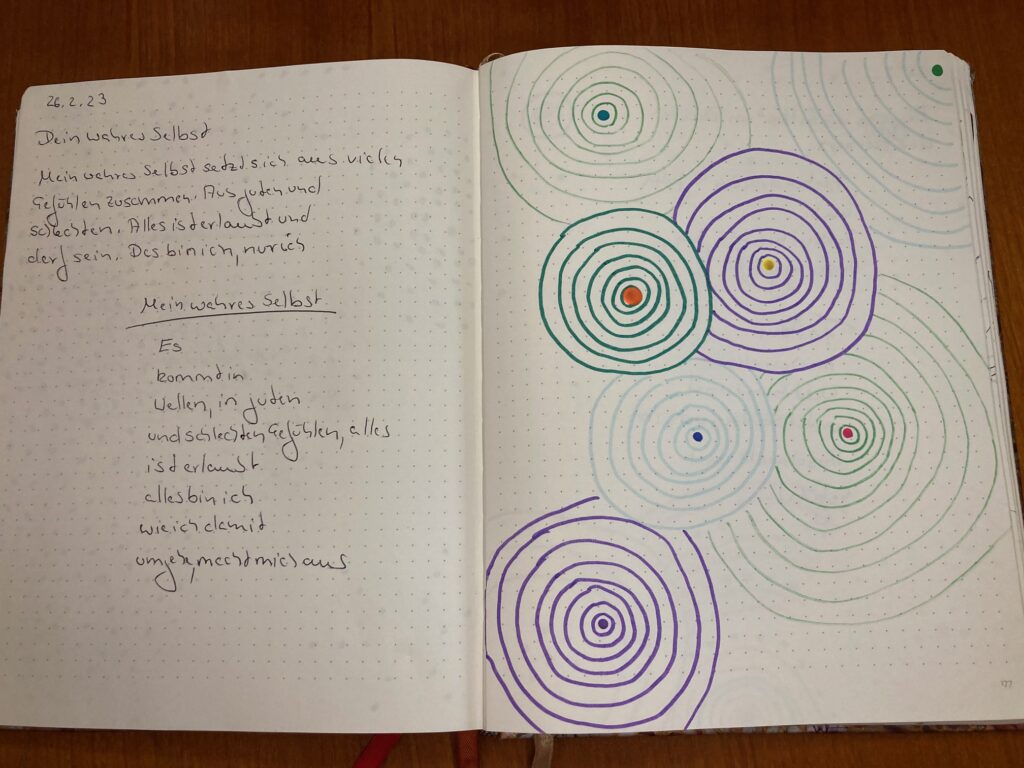 26.2.23
Dein wahres Selbst
Mein wahres Selbst setzt sich aus vielen
Gefühlen zusammen. Aus guten und
schlechten. Alles ist erlaubt und
darf sein. Das bin ich, nur ich
Mein wahres Selbst
Es
kommt in
Wellen, in guten
und schlechten Gefühlen, alles
ist erlaubt
alles bin ich
wie ich damit
umgehe, macht mich aus
177